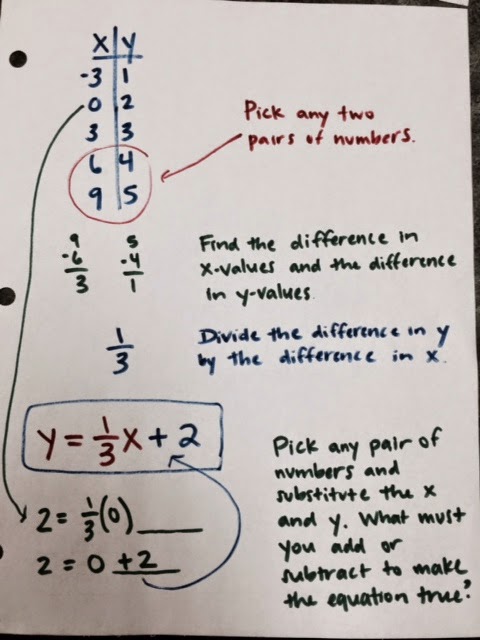 X Y
-3 1
0 2
3 3
6 4
9 5
Pick any two
pairs of numbers.
9 5
-6 -4
3 1
Find the difference in
x-values and the difference
in y-values.
1/3
Divide the difference in y
by the difference in x.
y = 1/3 x + 2
2 = 1/3 (0) ____
2 = 0 +2
Pick any pair of
numbers and
substitute the x
and y. What must
you add or
subtract to make
the equation true?